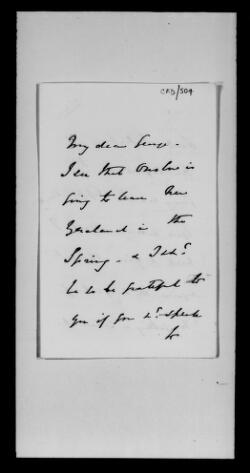 CRD/504
My dear George -
I see that Onslow is
going to leave New
Zealand in the
Spring - & I shd
be so be grateful to
you if you wd speak
to